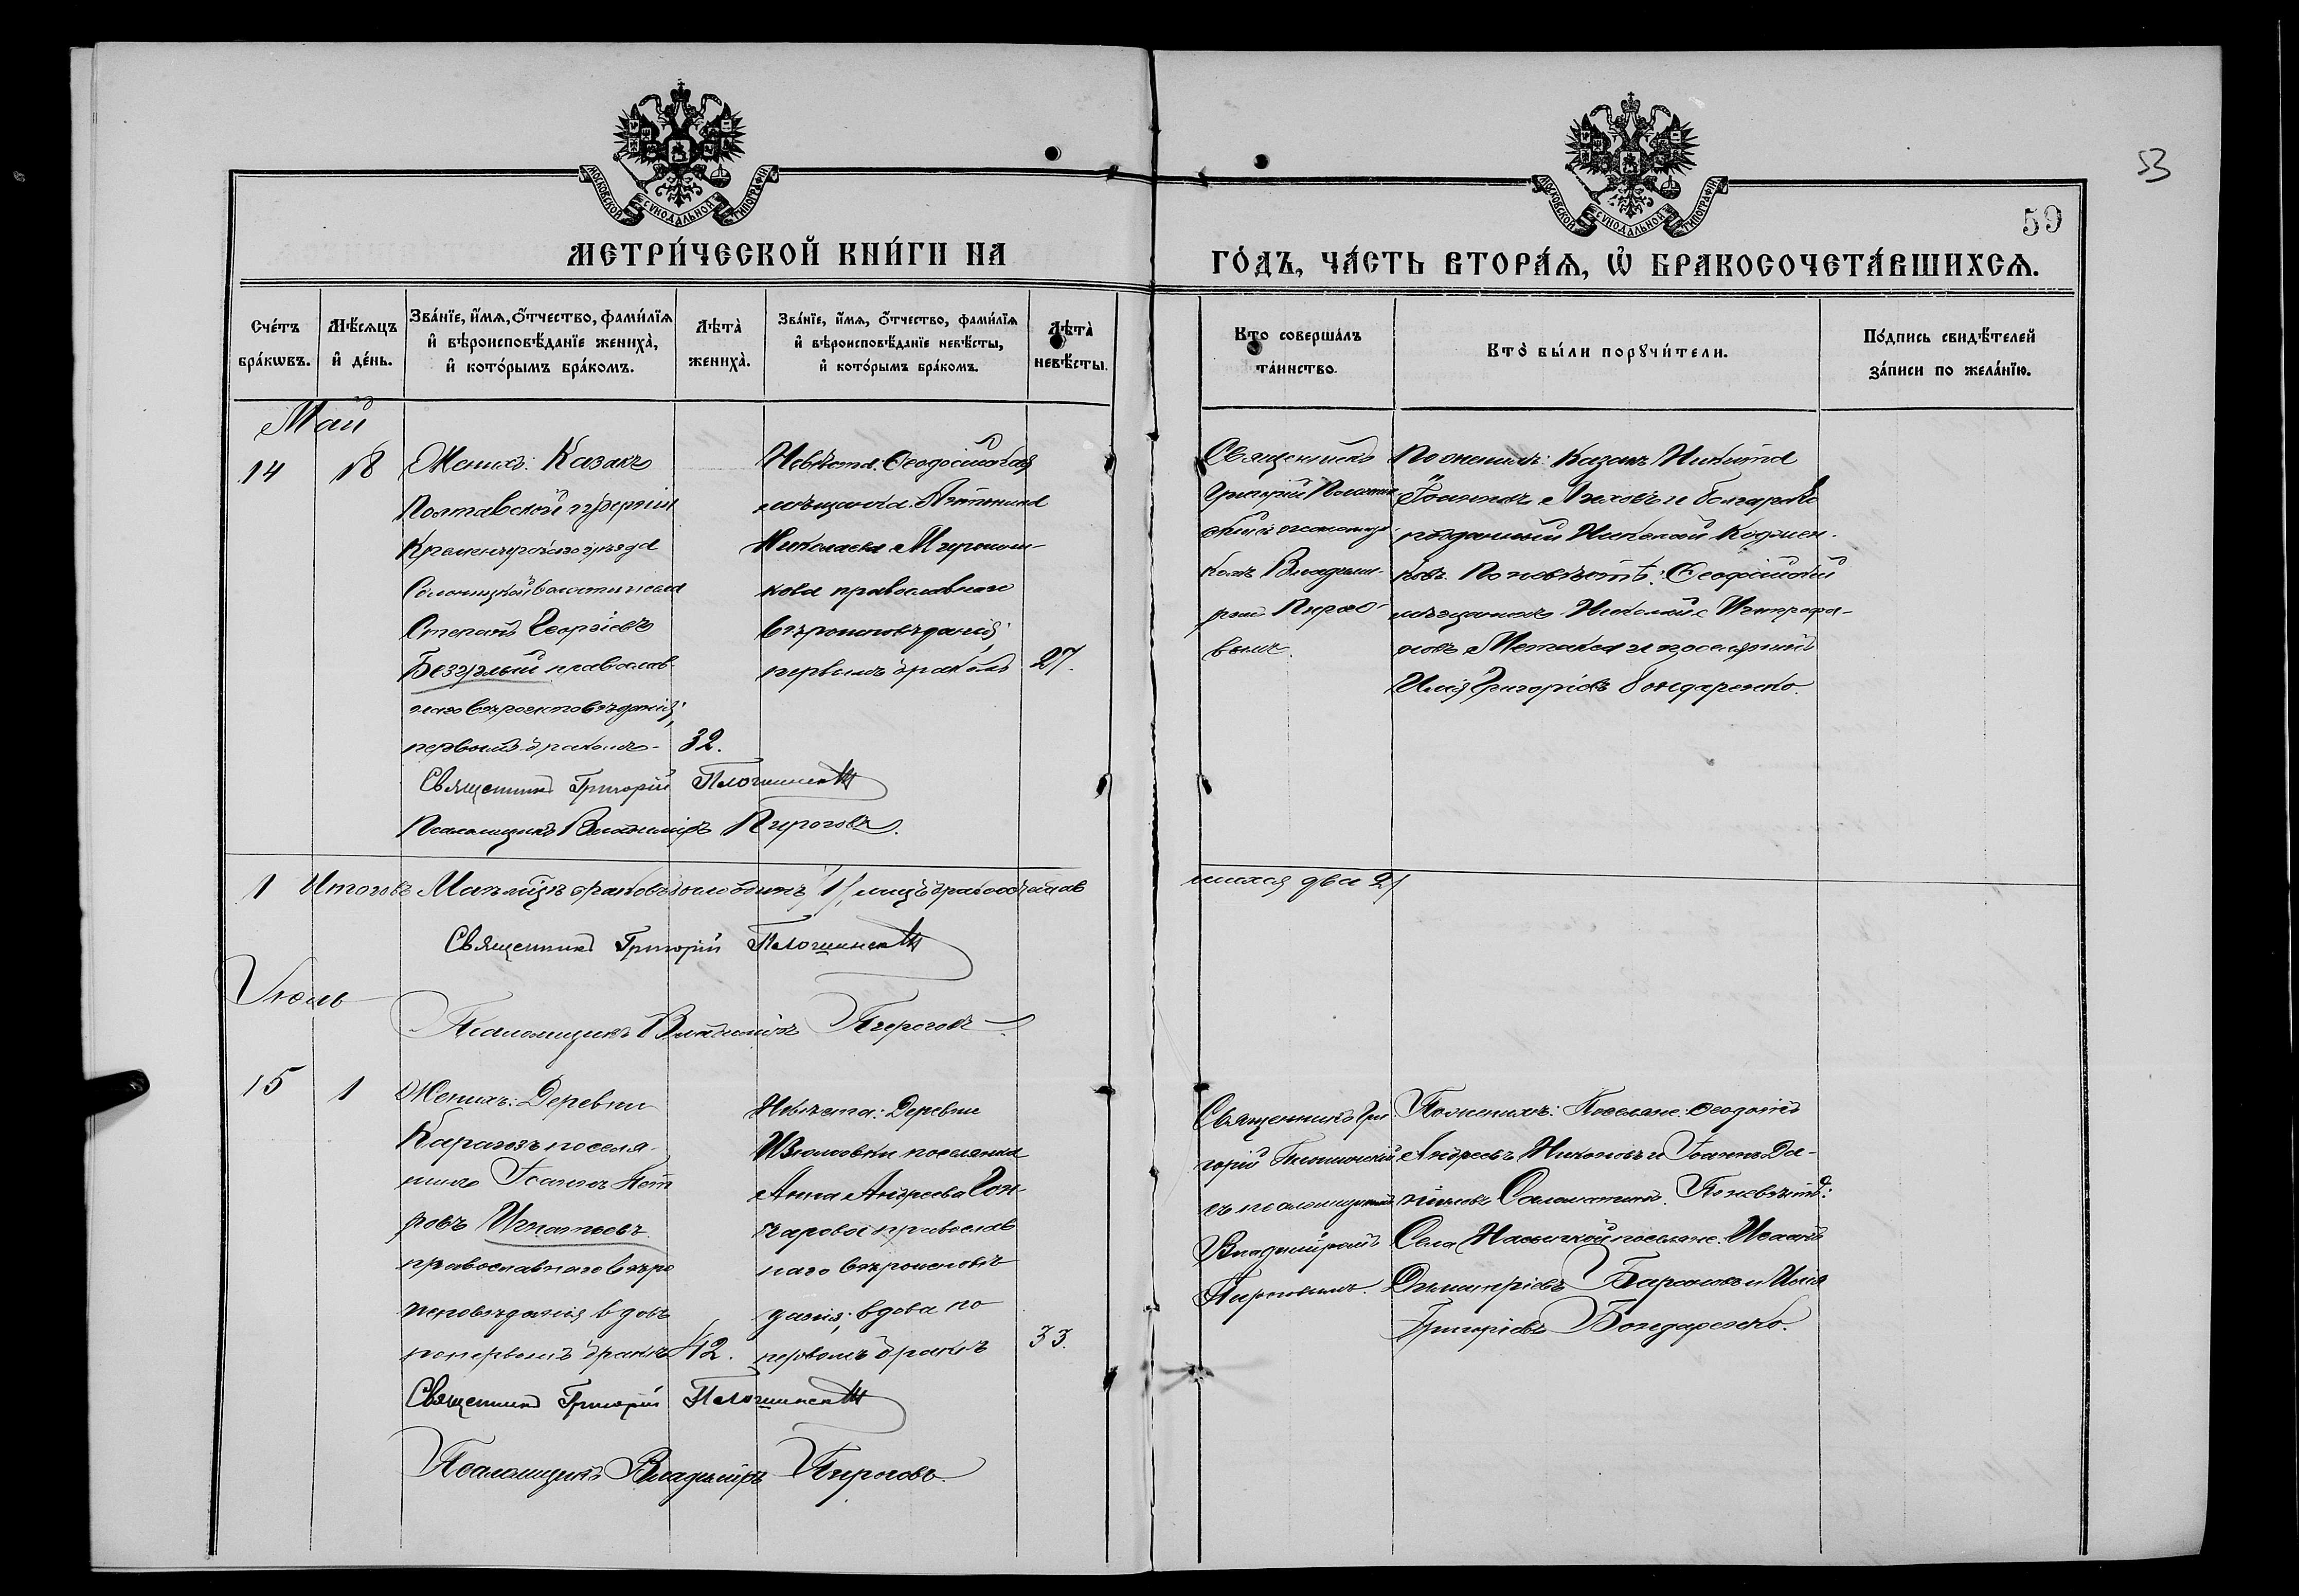 53
59
МОСКОВСКОЙ СѴНОДАЛЬНОЙ ТИПОГРАФІИ
МОСКОВСКОЙ СѴНОДАЛЬНОЙ ТИПОГРАФІИ
МЕТРИ́ЧЕСКОЙ КНИ́ГИ НА
ГО́ДЪ, ЧА́СТЬ ВТОРА́Я, Ѡ БРАКОСОЧЕТА́ВШИХСЯ.
Сче́тъ
бра́кѡвъ.
Мѣ́сяцъ
и де́нь.
Зва́нїе, и́мя, о́тчество, фами́лїя
и вѣроисповѣ́данїе жениха̀,
и кото́рымъ бра́комъ.
Лѣта̀
жениха̀.
Зва́нїе, и́мя, о́тчество, фами́лїя
и вѣроисповѣ́данїе невѣ́сты,
и кото́рымъ бра́комъ.
Лѣта̀
невѣ́сты.
Кто соверша́лъ
та́инство.
Кто̀ бы́ли порꙋчи́тели.
По́дпись свидѣ́телей
за́писи по жела́нїю.
Май
14
18
Женихъ: Казакъ
Полтавской губерніи
Кременчугскаго уѣзда
волости
Степанъ Георгіевъ
Беззубый православ-
наго вѣроисповѣданія,
первымъ бракомъ
32.
Невѣста: Ѳеодосійская
мѣщанка Антонина
Николаева
кова православнаго
вѣроисповѣданія,
первымъ бракомъ
27.
Священникъ
Григорій
Владими-
ромъ Пирого-
вымъ.
По женихѣ: казакъ Никита
и болгарско
подданный Николай
ковъ. По невѣстѣ: Ѳеодосійскій
мѣщанинъ Николай
новъ и поселянинъ
Илія Григоріевъ Бондаренко.
Священникъ Григорій
Псаломщикъ Владиміръ Пироговъ.
1 Итого въ Маѣ мѣсяцѣ браковъ было одинъ /1/, лицъ бракосочетав
шихся два 2/
Священникъ Григорій
Псаломщикъ Владиміръ Пироговъ
Іюль
15
1
Женихъ: Деревни
Карагозъ поселя-
нинъ Іоаннъ Пет
ровъ Игнатьевъ
православнаго вѣро
исповѣданія вдовъ
по первомъ бракѣ
42.
Невѣста: Деревни
Изюмовки поселянка
Анна Андреева Гон-
чарова православ
наго вѣроисповѣ
данія, вдова по
первомъ бракѣ
33.
Священникъ Гри
горій
съ псаломщикомъ
Владиміромъ
Пироговымъ.
По женихѣ: Поселяне: Ѳеодотъ
Андреевъ Никоновъ и Іоаннъ Да-
ниловъ По невѣстѣ:
Села поселяне: Исаакъ
Димитріевъ и Илія
Григоріевъ Бондаренко.
Священникъ Григорій
Псаломщикъ Владиміръ Пироговъ.